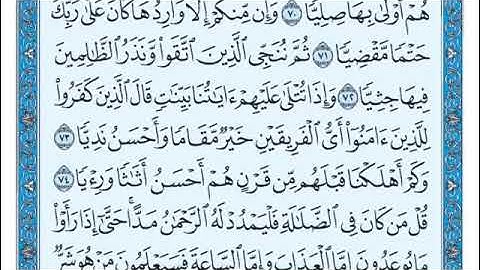 هُمْ أَوْلَىٰ بِهَا صِلِيًّا ٧٠ وَإِن مِّنكُمْ إِلَّا وَارِدُهَا كَانَ عَلَىٰ رَبِّكَ
حَتْمًا مَّقْضِيًّا ٧١ ثُمَّ نُنَجِّي الَّذِينَ اتَّقَوا وَّنَذَرُ الظَّالِمِينَ
فِيهَا جِثِيًّا ٧٢ وَإِذَا تُتْلَىٰ عَلَيْهِمْ ءَايَاتُنَا بَيِّنَاتٍ قَالَ الَّذِينَ كَفَرُوا
لِلَّذِينَ ءَامَنُوا أَيُّ الْفَرِيقَيْنِ خَيْرٌ مَّقَامًا وَأَحْسَنُ نَدِيًّا ٧٣
وَكَمْ أَهْلَكْنَا قَبْلَهُم مِّن قَرْنٍ هُمْ أَحْسَنُ أَثَاثًا وَرِءْيًا ٧٤
قُلْ مَن كَانَ فِي الضَّلَالَةِ فَلْيَمْدُدْ لَهُ الرَّحْمَٰنُ مَدًّا حَتَّىٰ إِذَا رَأَوْا
مَا يُوعَدُونَ إِمَّا الْعَذَابَ وَإِمَّا السَّاعَةَ فَسَيَعْلَمُونَ مَنْ هُوَ شَرٌّ